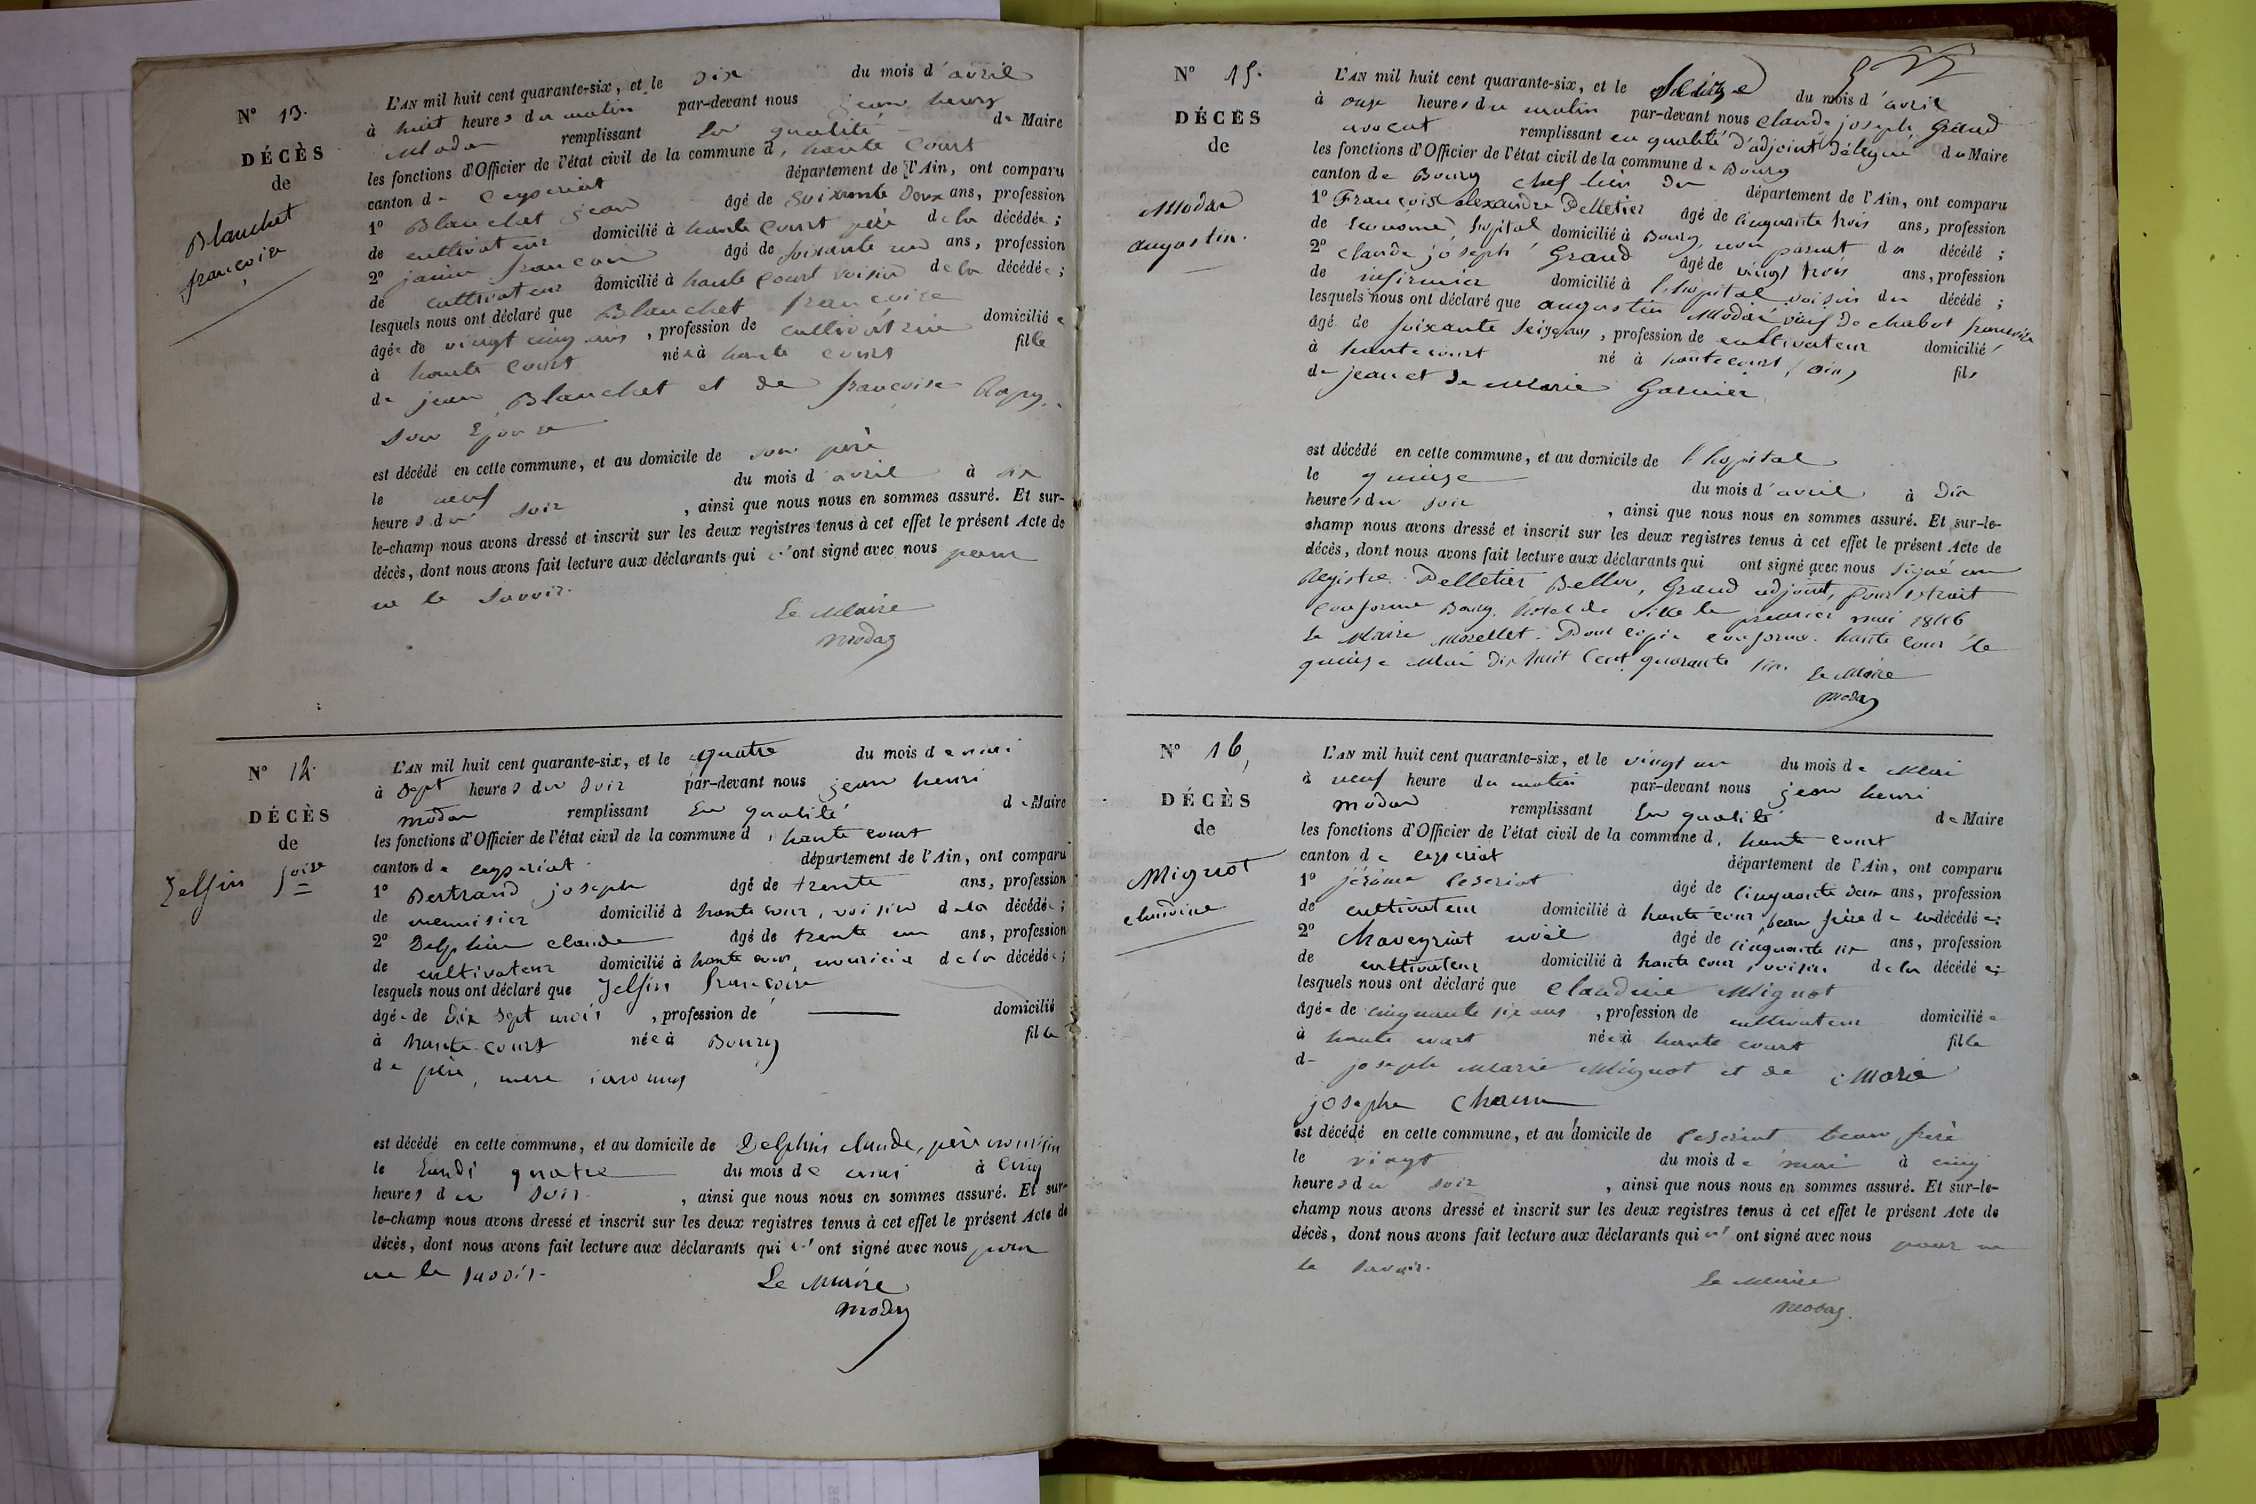 N° 13.
DÉCÈS
de
Blanchet
françoise
L'AN mil huit cent quarante-six, et le dix du mois d'avril
à huit heures du matin par-devant nous jean henry
Modas remplissant en qualité de Maire
les fonctions d'Officier de l'état civil de la commune d, haute Court
canton de Ceyseriat département de l'Ain, ont comparu
1° Blanchet jean âgé de soixante deux ans, profession
de cultivateur domicilié à haute Court père de la décédée ;
2° françois âgé de soixante ans, profession
de cultivateur domicilié à haute Court voisin de la décédée ;
lesquels nous ont déclaré que Blanchet françoise
âgée de vingt cinq ans, profession de cultivatrice domiciliée
à haute Court née à haute court fille
de jean Blanchet et de françoise
son Epouse
est décédé en cette commune, et au domicile de son père
le neuf du mois d'avril à six
heures du soir, ainsi que nous nous en sommes assuré. Et sur-
le-champ nous avons dressé et inscrit sur les deux registres tenus à cet effet le présent Acte de
décès, dont nous avons fait lecture aux déclarants qui n'ont signé avec nous pour
ne le savoir.
Le Maire
Modas
N° 14.
DÉCÈS
de
Jelfin foise
L'AN mil huit cent quarante-six, et le quatre du mois de mai
à sept heures du soir par-devant nous jean henri
modas remplissant En qualité de Maire
les fonctions d'Officier de l'état civil de la commune d, haute court
canton de ceyseriat département de l'Ain, ont comparu
1° Bertrand joseph âgé de trente ans, profession
de menuisier domicilié à haute cour, voisin de la décédée ;
2° Delphin claude âgé de trente un ans, profession
de cultivateur domicilié à haute cour, nouricier de la décédée ;
lesquels nous ont déclaré que Jelfin françoise
âgée de dix sept mois, profession de — domicilié
à haute-court née à Bourg fille
de père, mere inconnus
est décédé en cette commune, et au domicile de Delphin claude, père nouricier
le Lundi quatre du mois de mai à cinq
heures du soir, ainsi que nous nous en sommes assuré. Et sur-
le-champ nous avons dressé et inscrit sur les deux registres tenus à cet effet le présent Acte de
décès, dont nous avons fait lecture aux déclarants qui n'ont signé avec nous pour
ne le savoir.
Le Maire
Modas
N° 15.
DÉCÈS
de
Modas
augustin.
L'AN mil huit cent quarante-six, et le Seize du mois d'avril
à onze heures du matin par-devant nous Claude joseph Grand
avocat remplissant en qualité d'adjoint délégué du Maire
les fonctions d'Officier de l'état civil de la commune de Bourg
canton de Bourg chef lieu du département de l'Ain, ont comparu
1° François Alexandre Pelletier âgé de cinquante trois ans, profession
de économe, hôpital domicilié à Bourg, non parent du décédé ;
2° claude joseph Grand âgé de vingt trois ans, profession
de infirmier domicilié à l'hopital voisin du décédé ;
lesquels nous ont déclaré que augustin Modas veuf de chabot françoise
âgé de soixante seize ans, profession de cultivateur domicilié
à hautecourt né à hautecourt (ain) fils
de jean et de Marie Garnier
est décédé en cette commune, et au domicile de l'hopital
le quinze du mois d'avril à dix
heures du soir, ainsi que nous nous en sommes assuré. Et sur-le-
champ nous avons dressé et inscrit sur les deux registres tenus à cet effet le présent Acte de
décès, dont nous avons fait lecture aux déclarants qui ont signé avec nous signé au
Registre. Pelletier, Grand adjoint, pour extrait
conforme Bourg, hôtel de ville le premier mai 1846
Le Maire Morellet. Pour copie conforme. haute Cour le
quinze Mai dix huit Cent quarante six.
Le Maire
Modas
N° 16,
DÉCÈS
de
Mignot
claudine
L'AN mil huit cent quarante-six, et le vingt un du mois de Mai
à neuf heure du matin par-devant nous jean henri
modas remplissant En qualité de Maire
les fonctions d'Officier de l'état civil de la commune d, haute court
canton de ceyseriat département de l'Ain, ont comparu
1° jérôme Ceseriat âgé de cinquante deux ans, profession
de cultivateur domicilié à haute cour, beau frère de la décédée ;
2° Chaveyriat noël âgé de cinquante six ans, profession
de cultivateur domicilié à haute cour, voisin de la décédée ;
lesquels nous ont déclaré que Claudine Mignot
âgée de cinquante six ans, profession de cultivateur domiciliée
à haute court née à haute court fille
de joseph Marie Mignot et de Marie
josephe
est décédé en cette commune, et au domicile de Ceseriat beau frère
le vingt du mois de mai à cinq
heures du soir, ainsi que nous nous en sommes assuré. Et sur-le-
champ nous avons dressé et inscrit sur les deux registres tenus à cet effet le présent Acte de
décès, dont nous avons fait lecture aux déclarants qui n'ont signé avec nous pour ne
le savoir.
Le Maire
Modas.